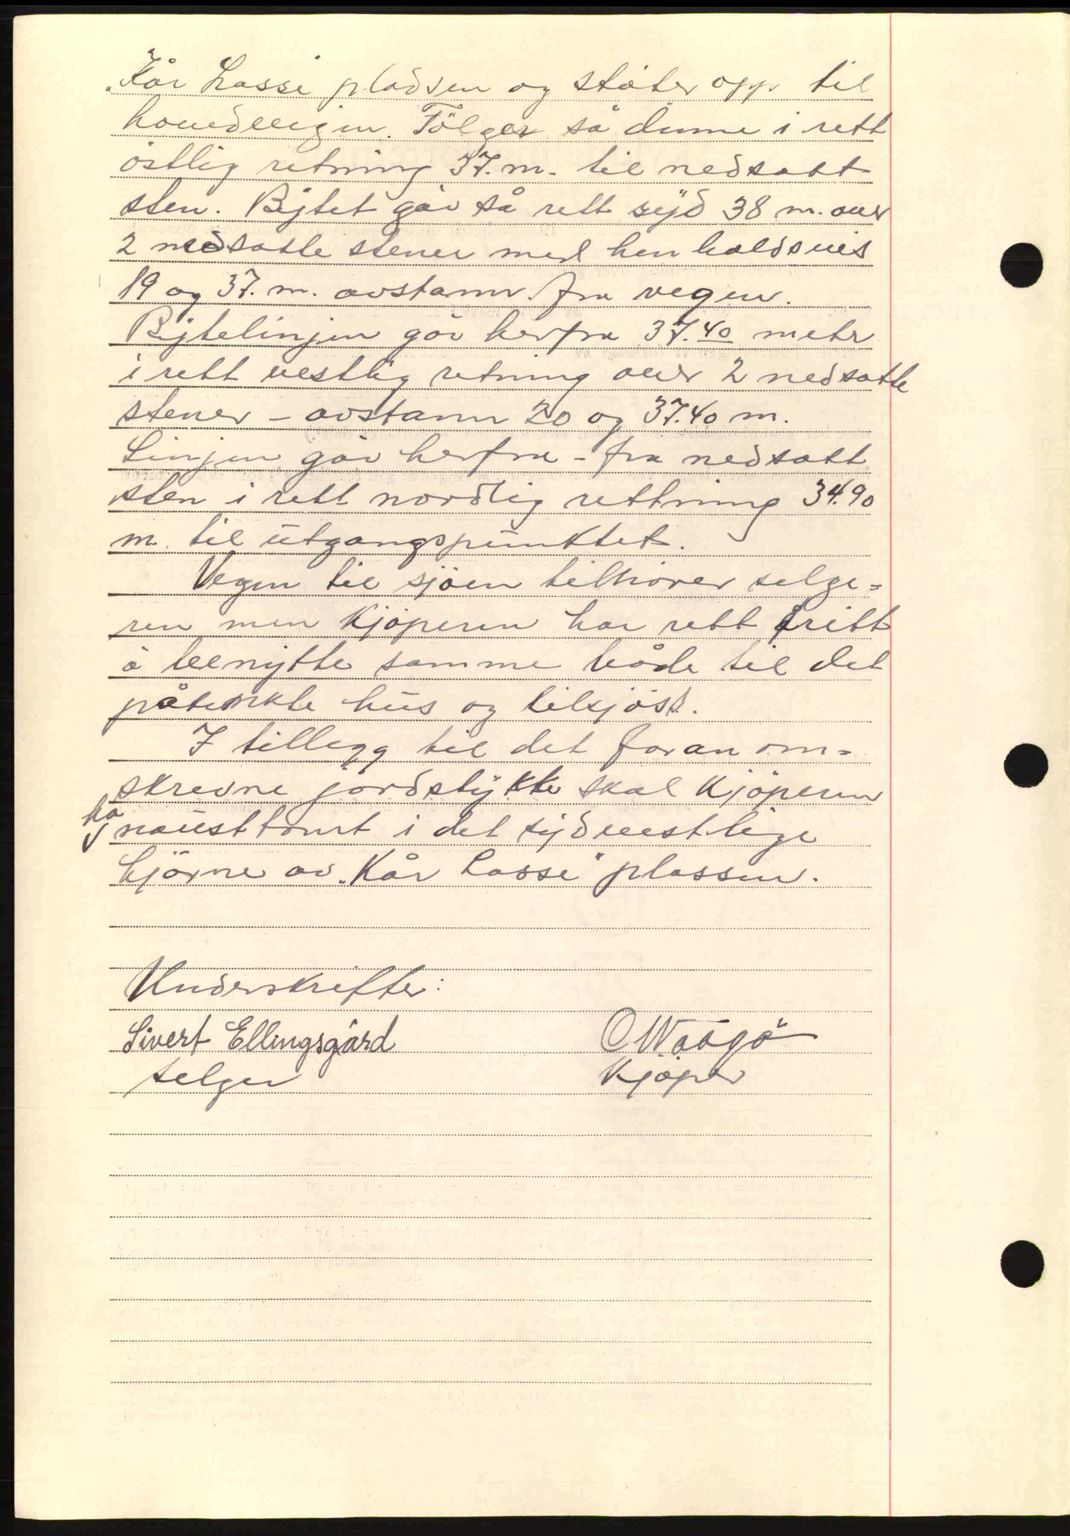 "Kår Lasse pladsen og støter opp til
hovedveigen. Fölger så denne i rett
östlig retning 37. m. til nedsatt
sten. Bytet går så rett syd 38 m. over
2 nedsatte stener med henholdsvis
19 og 37. m. avstann fra vegen.
Bytelinjen går herfra 37.40 meter
i rett vestlig retning over 2 nedsatte
stener - avstann 20 og 37.40 m.
Linjen går herfra - fra nedsatt
sten i rett nordlig rettning 34.90
m. til utgangspunktet.
Vegen til sjöen tilhörer selge=
ren men kjöperen har rett fritt
å benytte samme både til det
påtenkte hus og til sjöss.
I tillegg til det foran om=
skrevne jordstykke skal kjöperen
ha
nausttomt i det sydvestlige
hjörne av "Kår Lasse" plassen.
Underskrifter:
Sivert Ellingsgård
O Waagö
selger
Kjöper